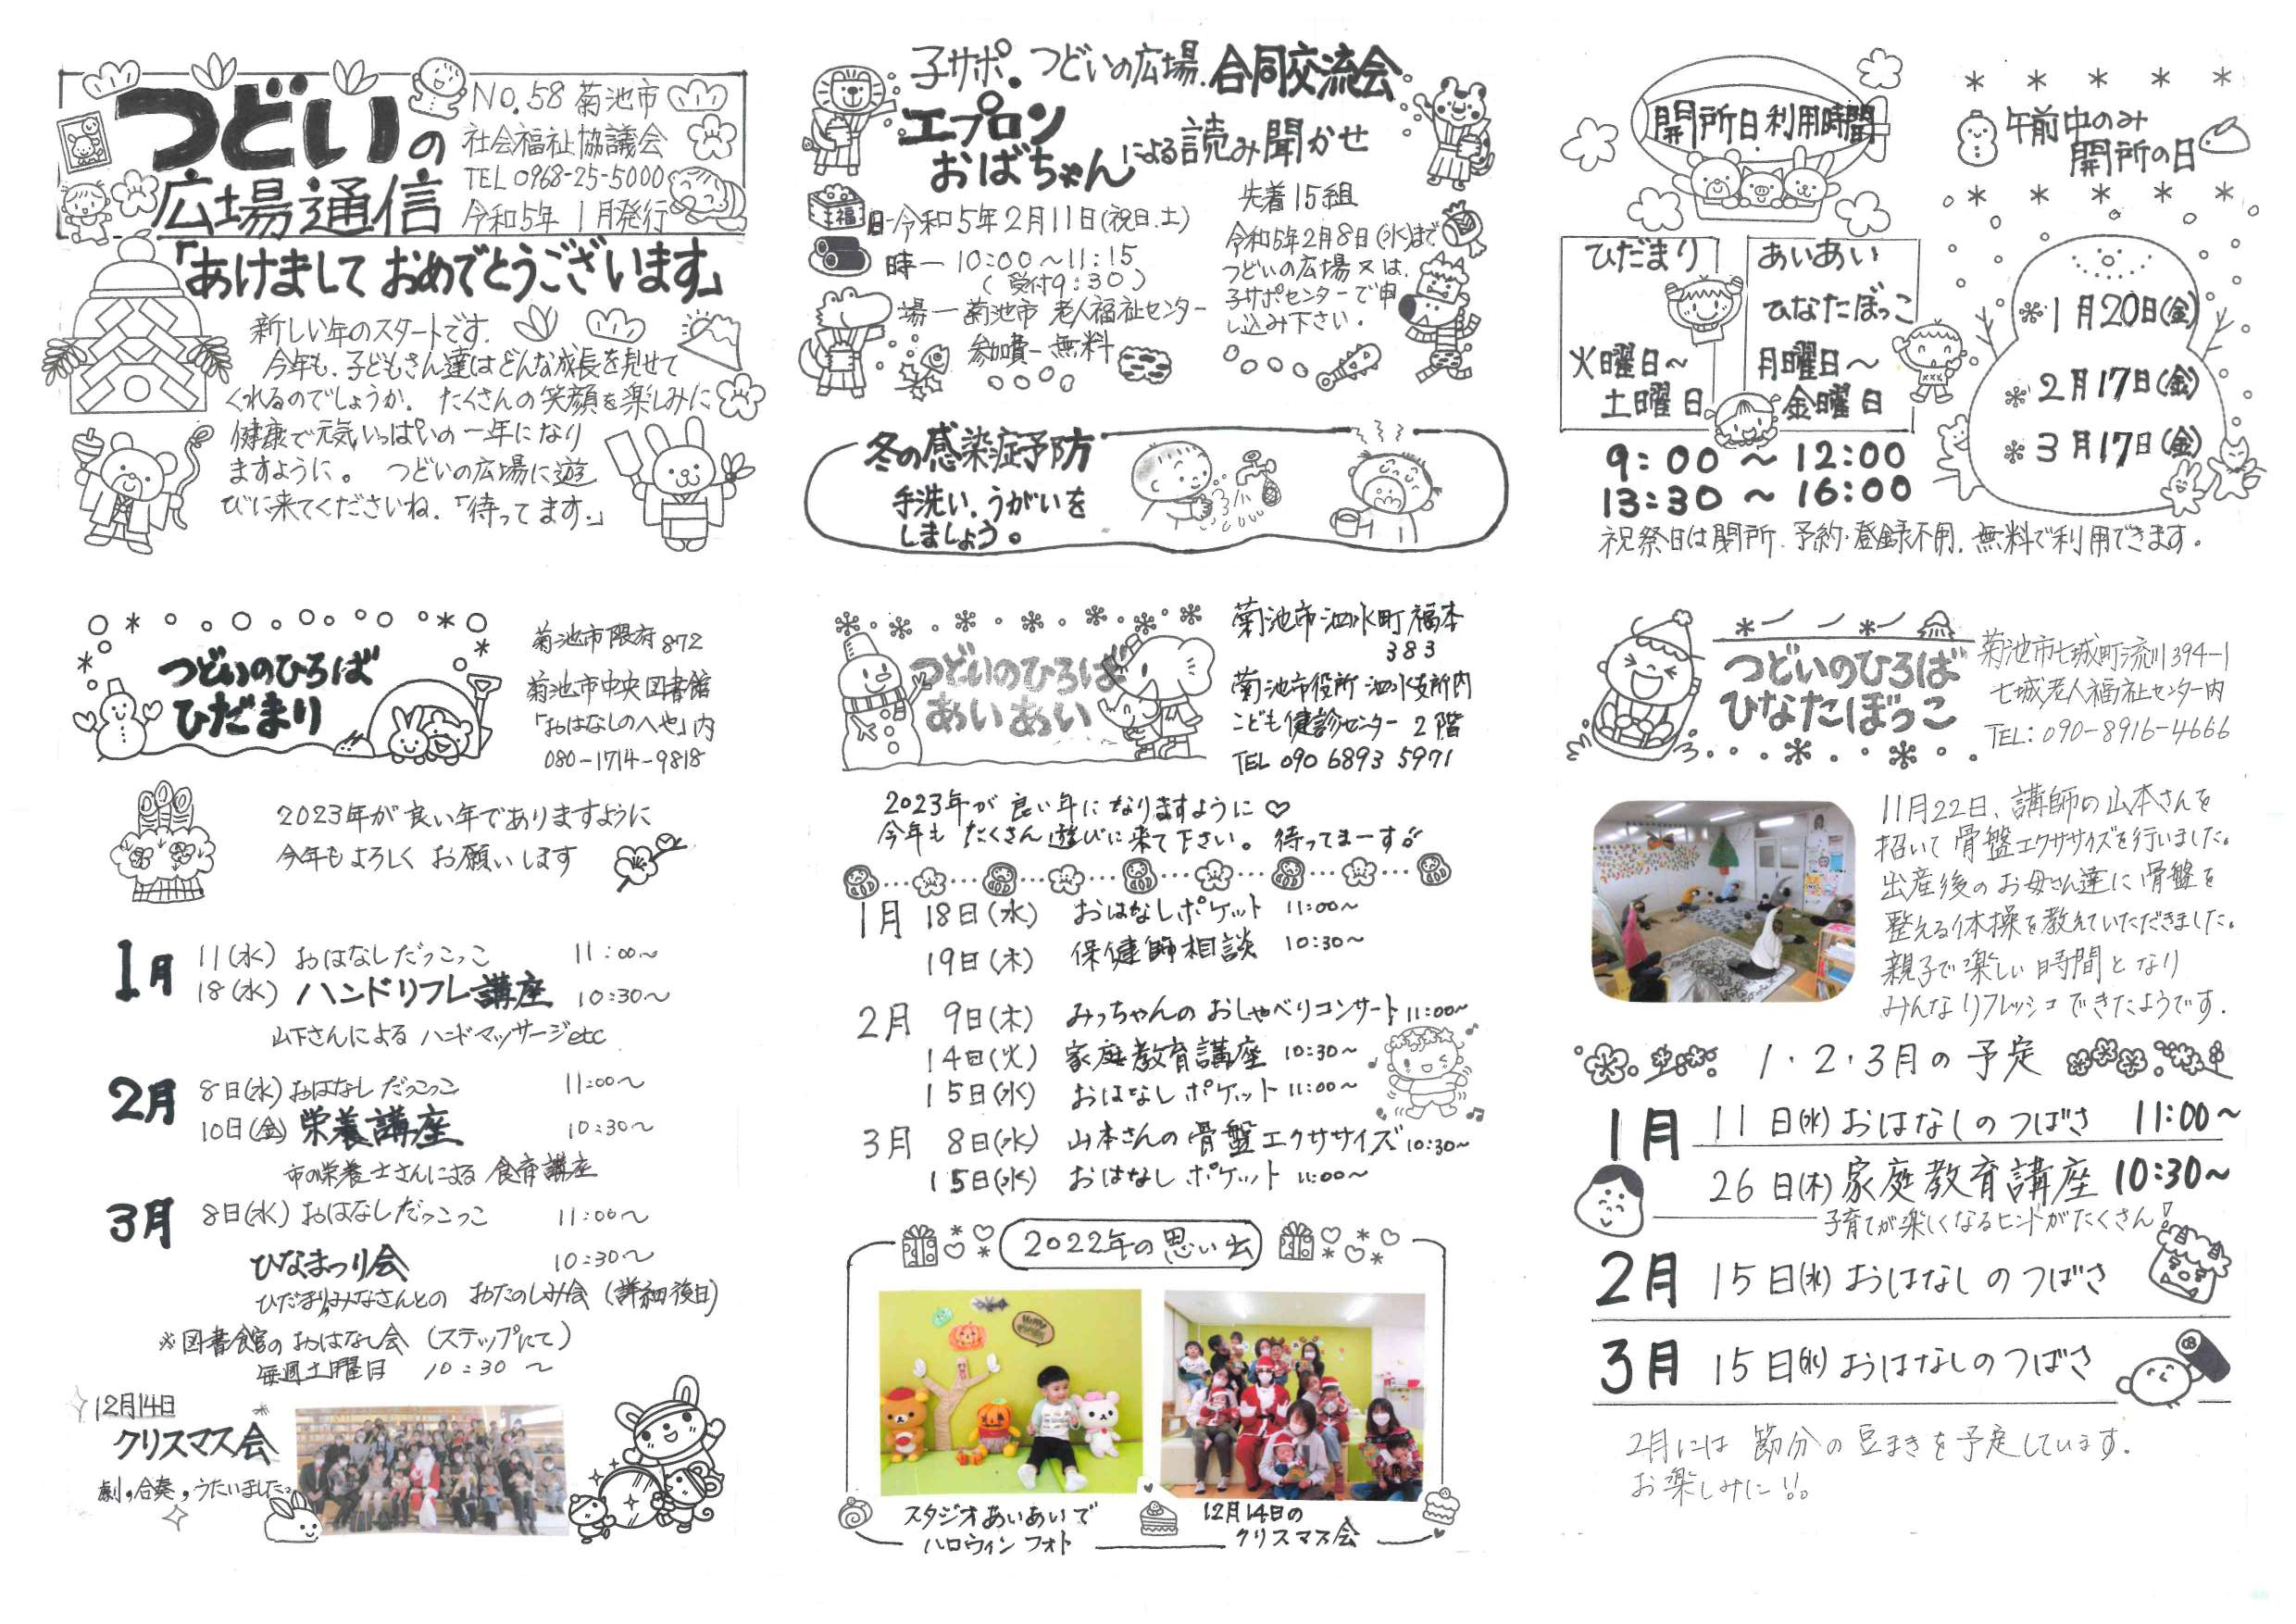 つどいの
広場通信
No.58 菊池市
社会福祉協議会
TEL 0968-25-5000
令和5年 1月発行
「あけまして おめでとうございます」
新しい年のスタートです.
今年も、子どもさん達はどんな成長を見せて
くれるのでしょうか. たくさんの笑顔を楽しみに
健康で元気いっぱいの一年になり
ますように。 つどいの広場に遊
びに来てくださいね.「待ってます.」
子サポ.つどいの広場.合同交流会
エプロン
おばちゃんによる読み聞かせ
福
日-令和5年2月11日(祝日.土)
時-10:00〜11:15
(受付9:30)
場-菊池市 老人福祉センター
参加費-無料
先着15組
令和5年2月8日(水)まで
つどいの広場又は、
子サポセンターで申
し込み下さい.
冬の感染症予防
手洗い,うがいを
しましょう。
開所日.利用時間
ひだまり
火曜日〜
土曜日
あいあい
ひなたぼっこ
月曜日〜
金曜日
9:00〜12:00
13:30〜16:00
祝祭日は閉所.予約・登録不用.無料で利用できます.
午前中のみ
開所の日
1月20日(金)
2月17日(金)
3月17日(金)
つどいのひろば
ひだまり
菊池市隈府872
菊池市中央図書館
「おはなしのへや」内
080-1714-9818
2023年が良い年でありますように
今年もよろしくお願いします
1月 11(水) おはなしだっこっこ 11:00〜
18(水) ハンドリフレ講座 10:30〜
山下さんによる ハンドマッサージetc
2月 8日(水) おはなしだっこっこ 11:00〜
10日(金) 栄養講座 10:30〜
市の栄養士さんによる 食育講座
3月 8日(水) おはなしだっこっこ 11:00〜
ひなまつり会 10:30〜
ひだまりみなさんとの おたのしみ会 (詳細後日)
※図書館のおはなし会 (ステップにて)
毎週土曜日 10:30〜
12月14日
クリスマス会
劇,合奏,うたいました。
つどいのひろば
あいあい
菊池市泗水町福本
383
菊池市役所 泗水支所内
こども健診センター 2階
TEL 090 6893 5971
2023年が良い年になりますように♡
今年も たくさん遊びに来て下さい。待ってまーす
1月 18日(水) おはなしポケット 11:00〜
19日(木) 保健師相談 10:30〜
2月 9日(木) みっちゃんの おしゃべりコンサート 11:00〜
14日(火) 家庭教育講座 10:30〜
15日(水) おはなしポケット 11:00〜
3月 8日(水) 山本さんの骨盤エクササイズ 10:30〜
15日(水) おはなしポケット 11:00〜
2022年の思い出
スタジオあいあいで
ハロウィンフォト
12月14日の
クリスマス会
つどいのひろば
ひなたぼっこ
菊池市七城町流川394-1
七城老人福祉センター内
TEL:090-8916-4666
11月22日、講師の山本さんを
招いて骨盤エクササイズを行いました。
出産後のお母さん達に骨盤を
整える体操を教えていただきました。
親子で楽しい時間となり
みんなリフレッシュできたようです.
1・2・3月の予定
1月 11日(水) おはなしのつばさ 11:00〜
26日(木) 家庭教育講座 10:30〜
子育てが楽しくなるヒントがたくさん!
2月 15日(水) おはなしのつばさ
3月 15日(水) おはなしのつばさ
2月には 節分の豆まきを予定しています.
お楽しみに!!